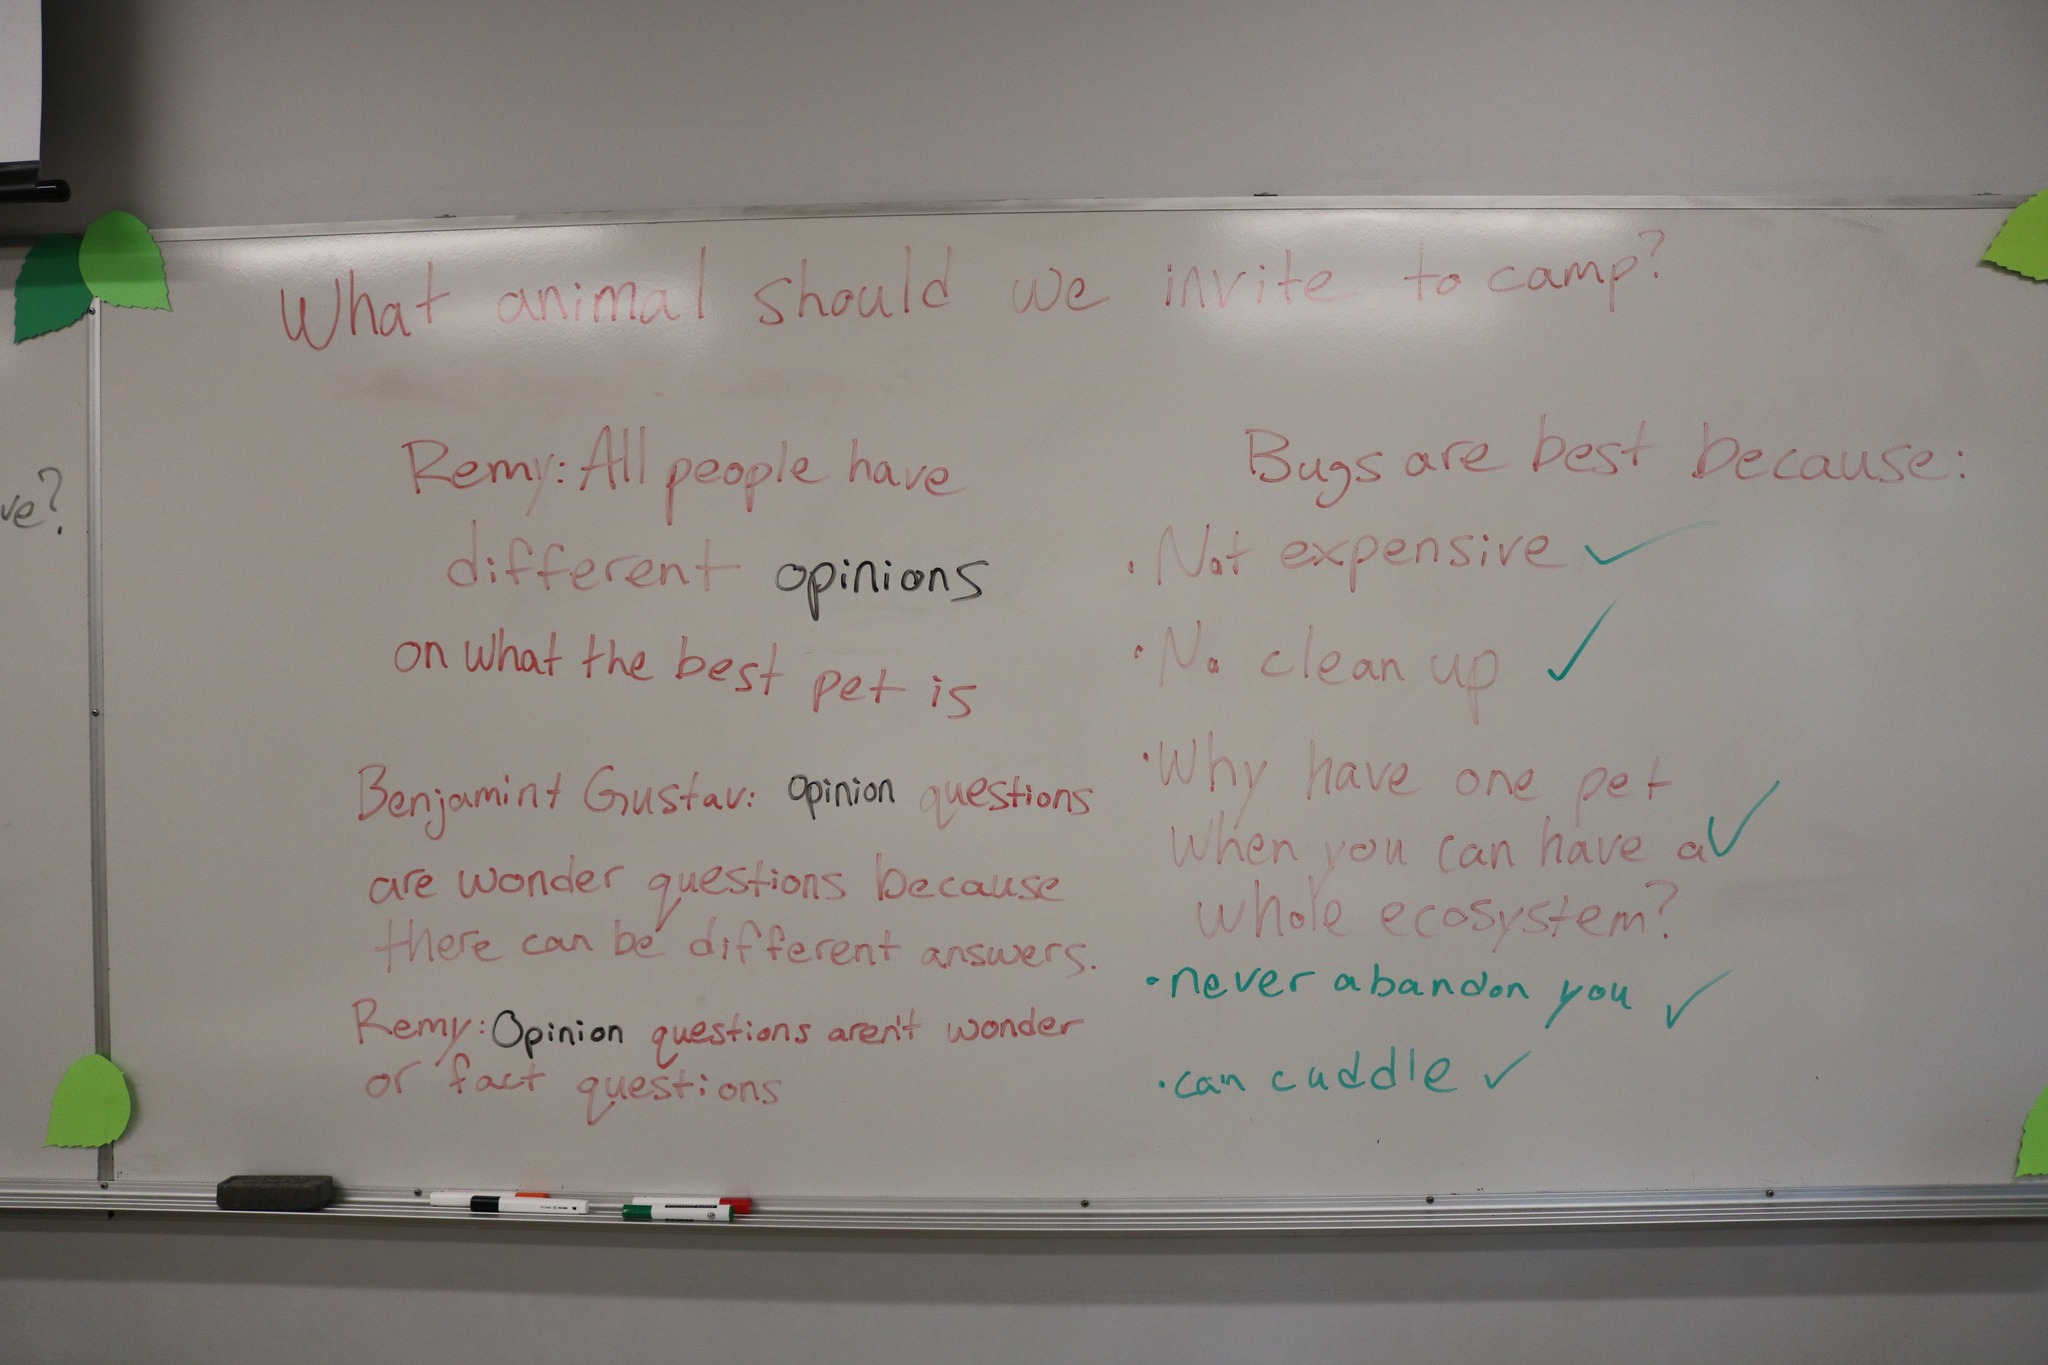 What animal should we invite to camp?
Remy: All people have
different opinions
on what the best pet is
Benjamint Gustav: opinion questions
are wonder questions because
there can be different answers.
Remy: Opinion questions aren't wonder
or fact questions
Bugs are best because:
• Not expensive ✓
• No clean up ✓
• Why have one pet
when you can have a ✓
whole ecosystem?
• never abandon you ✓
• can cuddle ✓
ve?